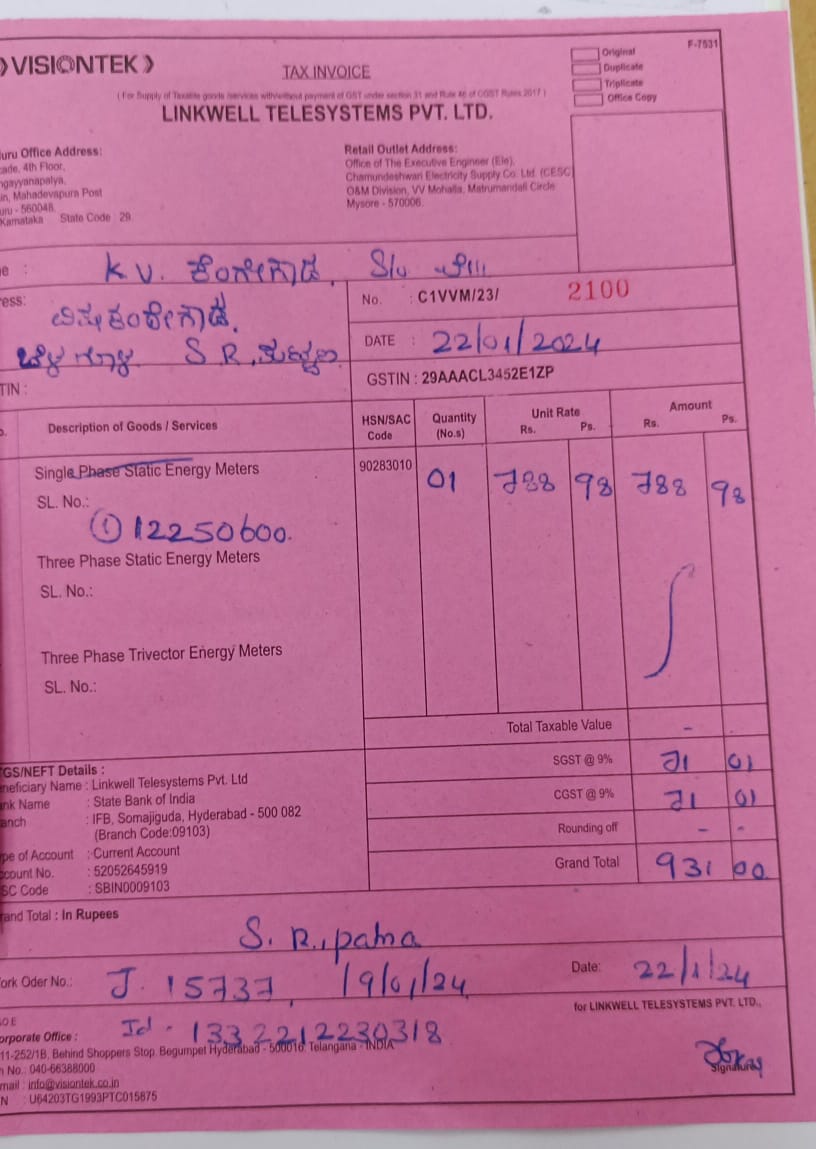 VISIONTEK
TAX INVOICE
F-7531
Original
Duplicate
Triplicate
Office Copy
( For Supply of Taxable goods /services with/without payment of GST under section 31 and Rule 46 of CGST Rules 2017 )
LINKWELL TELESYSTEMS PVT. LTD.
uru Office Address:
ade, 4th Floor,
ngayyanapalya,
in, Mahadevapura Post
uru - 560048.
Karnataka State Code : 29.
Retail Outlet Address:
Office of The Executive Engineer (Ele),
Chamundeshwari Electricity Supply Co. Ltd. (CESC
O&M Division, VV Mohalla, Matrumandali Circle
Mysore - 570006.
e : K.V. ಕೆಂಗೇಗೌಡ, S/o
ress:
S R,
No. : C1VVM/23/ 2100
DATE : 22/01/2024
TIN :
GSTIN : 29AAACL3452E1ZP
o. Description of Goods / Services HSN/SAC Code Quantity (No.s) Unit Rate Rs. Ps. Amount Rs. Ps.
Single Phase Static Energy Meters 90283010 01 788 98 788 98
SL. No.:
① 12250600.
Three Phase Static Energy Meters
SL. No.:
Three Phase Trivector Energy Meters
SL. No.:
Total Taxable Value - -
SGST @ 9% 71 01
CGST @ 9% 71 01
Rounding off - -
Grand Total 931 00
GS/NEFT Details :
neficiary Name : Linkwell Telesystems Pvt. Ltd
nk Name : State Bank of India
anch : IFB, Somajiguda, Hyderabad - 500 082
(Branch Code:09103)
pe of Account : Current Account
count No. : 52052645919
SC Code : SBIN0009103
rand Total : In Rupees
S. R., patna
ork Oder No.: J. 15737, 19/01/24
Date: 22/1/24
for LINKWELL TELESYSTEMS PVT. LTD.,
Id - 1332212230318
orporate Office :
11-252/1B, Behind Shoppers Stop. Begumpet Hyderabad - 500016. Telangana - INDIA
n No.: 040-66388000
mail : info@visiontek.co.in
N : U64203TG1993PTC015875
Signature